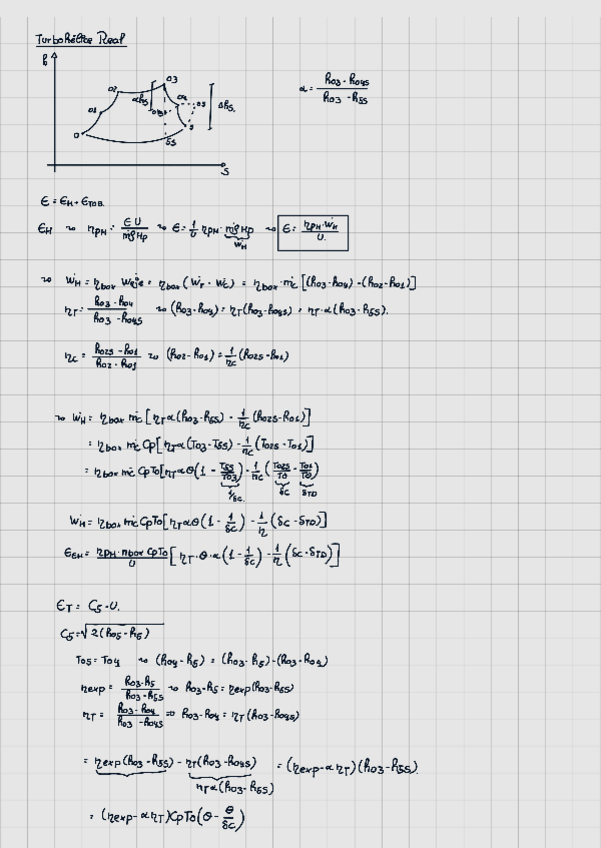 TurboHélice Real
h
03
02
αΔhs
04
05
Δhs.
01
0
5
5s
s
α = (h03 - h04s)/(h03 - h5s)
E = EH + ETOB.
EH ~> ηPH = (E U)/(ṁf Hp) ~> E = 1/U ηPH · ṁf Hp ~> E = (ηPH · ẆH)/U.
ẆH
~> ẆH = ηbox Ẇeje = ηbox (ẆT - ẆC) = ηbox · ṁc [(h03 - h04) - (h02 - h01)]
ηT = (h03 - h04)/(h03 - h04s) ~> (h03 - h04) = ηT (h03 - h04s) = ηT · α (h03 - h5s).
ηc = (h02s - h01)/(h02 - h01) ~> (h02 - h01) = 1/ηc (h02s - h01)
~> ẆH = ηbox ṁc [ηT α (h03 - h5s) - 1/ηc (h02s - h01)]
= ηbox ṁc Cp [ηT α (T03 - T5s) - 1/ηc (T02s - T01)]
= ηbox ṁc Cp T0 [ηT α θ (1 - T5s/T03) - 1/ηc (T02s/T0 - T01/T0)]
1/δc. δc δTD
ẆH = ηbox ṁc Cp T0 [ηT α θ (1 - 1/δc) - 1/η (δc - δTD)]
EEH = (ηPH · ηbox Cp T0)/U [ηT · θ · α (1 - 1/δc) - 1/η (δc - δTD)]
ET = C5 - U.
C5 = √2(h05 - h5)
T05 = T04 ~> (h04 - h5) = (h03 - h5) - (h03 - h04)
ηexp = (h03 - h5)/(h03 - h5s) ~> h03 - h5 = ηexp (h03 - h5s)
ηT = (h03 - h04)/(h03 - h04s) => h03 - h04 = ηT (h03 - h04s)
= ηexp (h03 - h5s) - ηT (h03 - h04s) = (ηexp - α ηT)(h03 - h5s).
ηT α (h03 - h5s)
= (ηexp - α ηT) Cp T0 (θ - θ/δc)